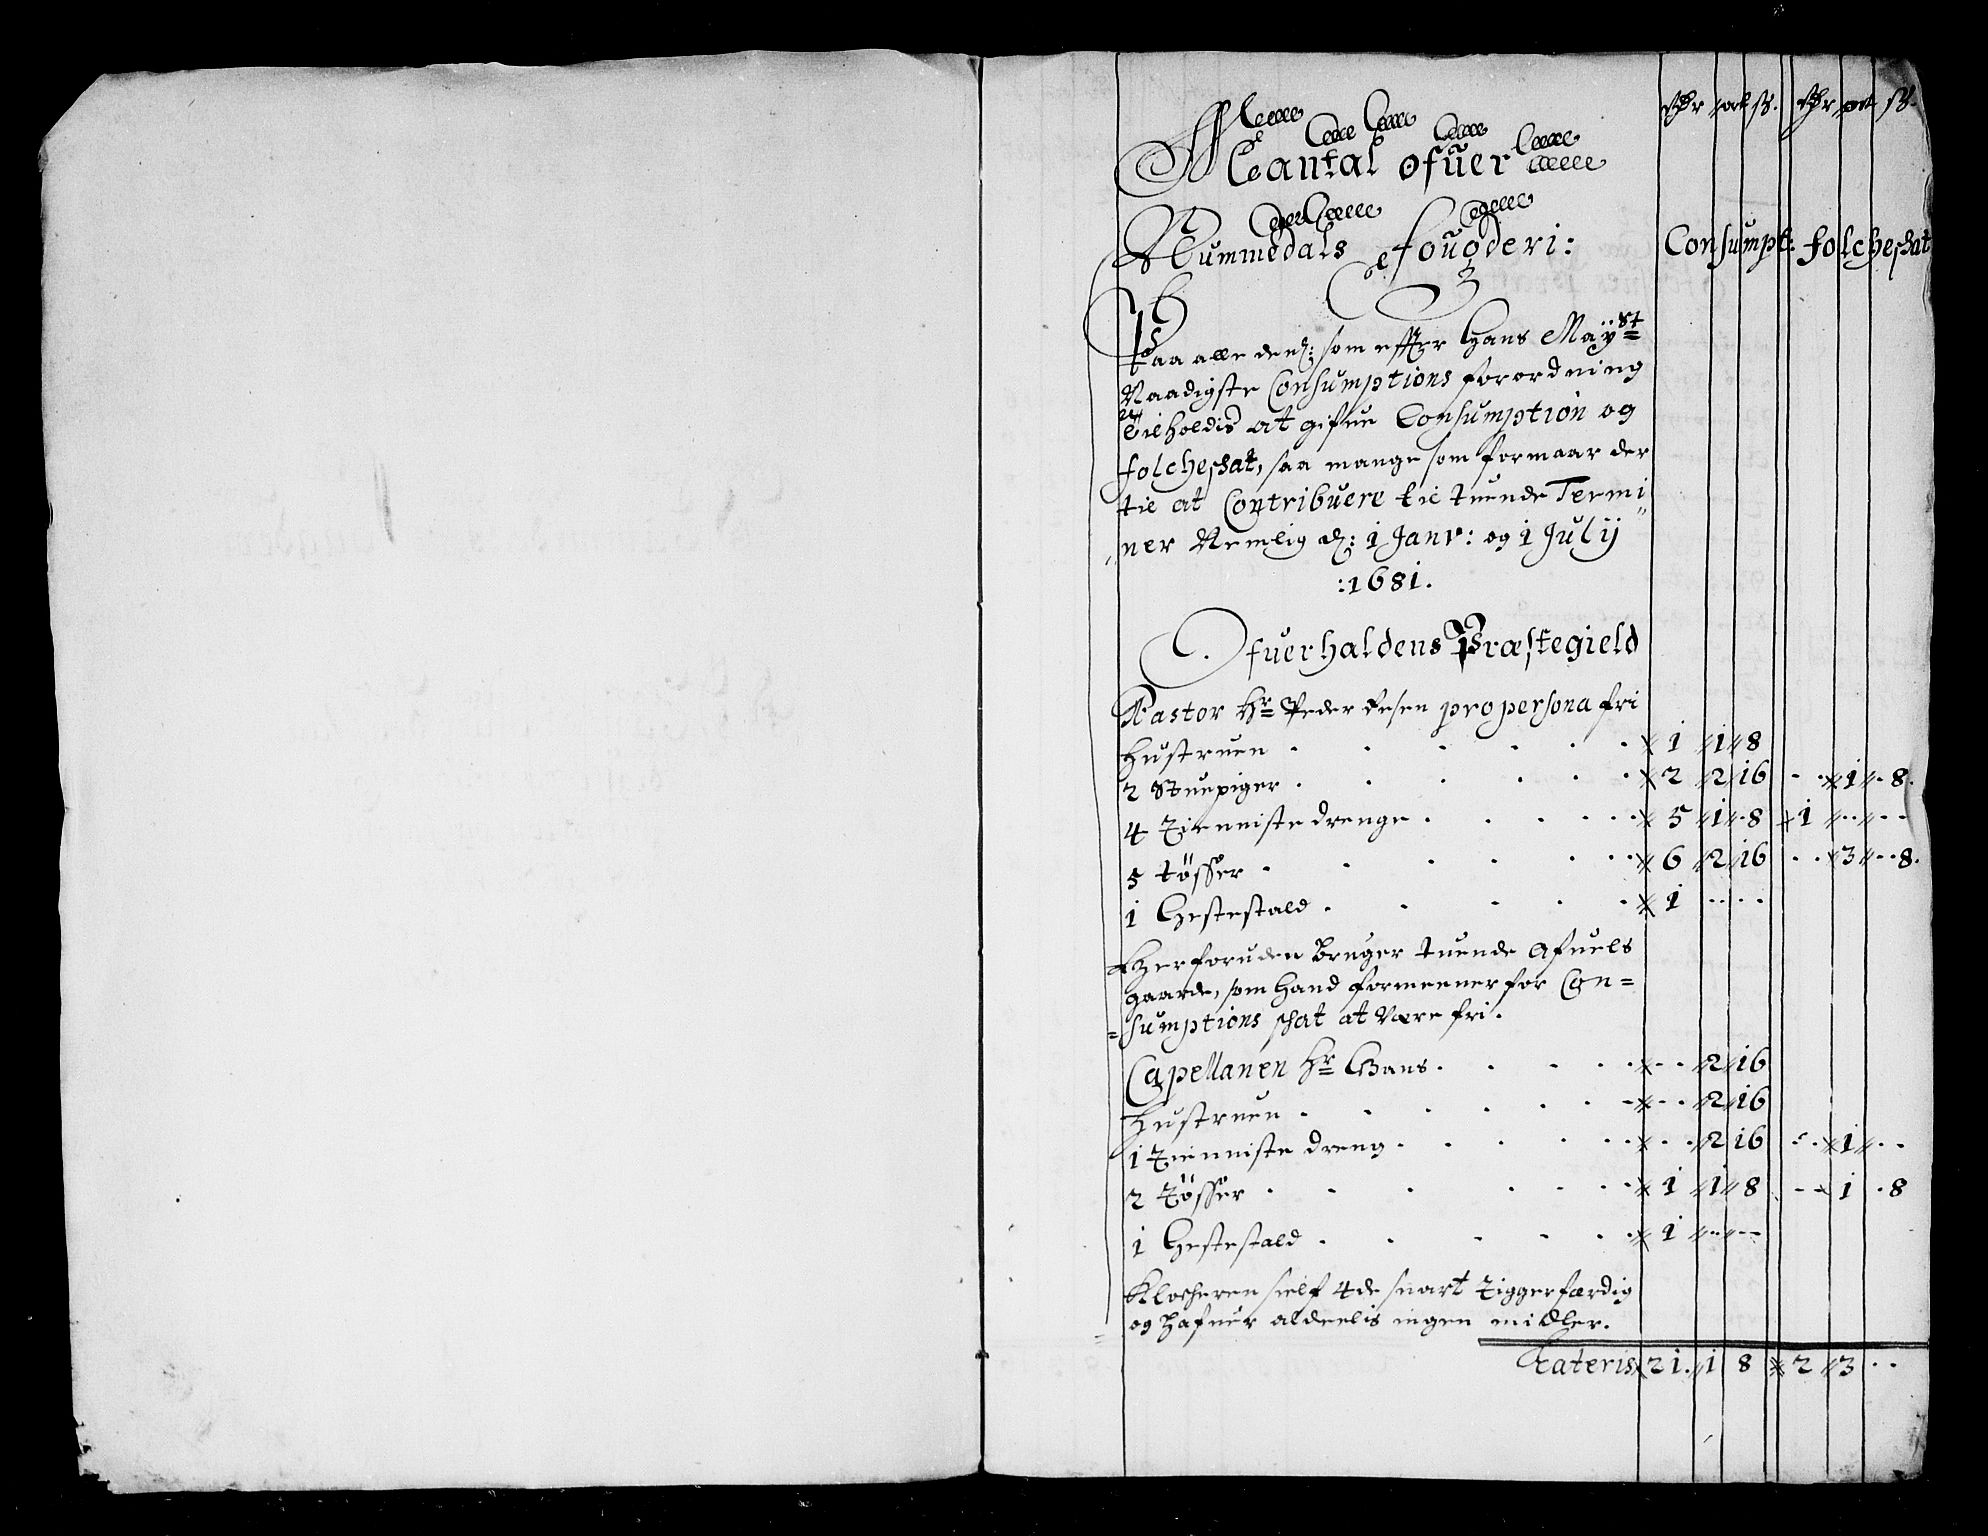 Mantal ofuer
Nummedals fougderi:
Consumpt: folcheschat
Paa alle denẽ: som efter Hans Maÿst
Naadigste Consumptions forordning
tilholdis at gifue Consumption og
folcheschat, saa mange som formaar der
til at Contribuere til tuende Termi
ner Nemlig d: 1 Janv: og 1 Julij
:1681.
Ofuerhaldens Præstegield
Pastor Hr Peder pro persona fri
Hustruen . . . . . . 1 1 8
2 Stuepiger . . . . . 2 2 16 . . 1 . 8.
4 Tienniste drenge . . . . 5 1 . 8 1 . . . .
5 tøsser . . . . . . 6 2 16 . . 3 . . 8.
1 Hestestald . . . . . 1 . . . .
Herforuden bruger tuende Afuels
gaarde, som hand formeener for Con=
=sumptions schat at være fri.
Capellanen Hr Hans . . . . . . 2 16
Hustruen . . . . . . . . 2 16
1 Tienniste dreng . . . . . . . 2 16 . . 1 . .
2 Tøsser . . . . . . 1 1 8 . . 1 . 8
1 Hestestald . . . . . 1 . . . .
Klocheren self 4de snart tiggerfærdig
og hafuer aldeelis ingen midler.
Lateris 21. 1 8 2 3 . .